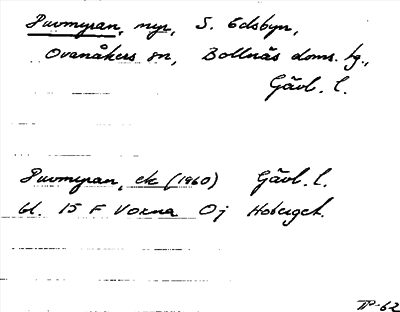 Purmyran, myr, S. Edsbyn,
Ovanåkers sn, Bollnäs doms. hg.,
Gävl. l.
Purmyran, ek (1960) Gävl. l.
bl. 15 F Voxna Oj Hoberget.
TP-62